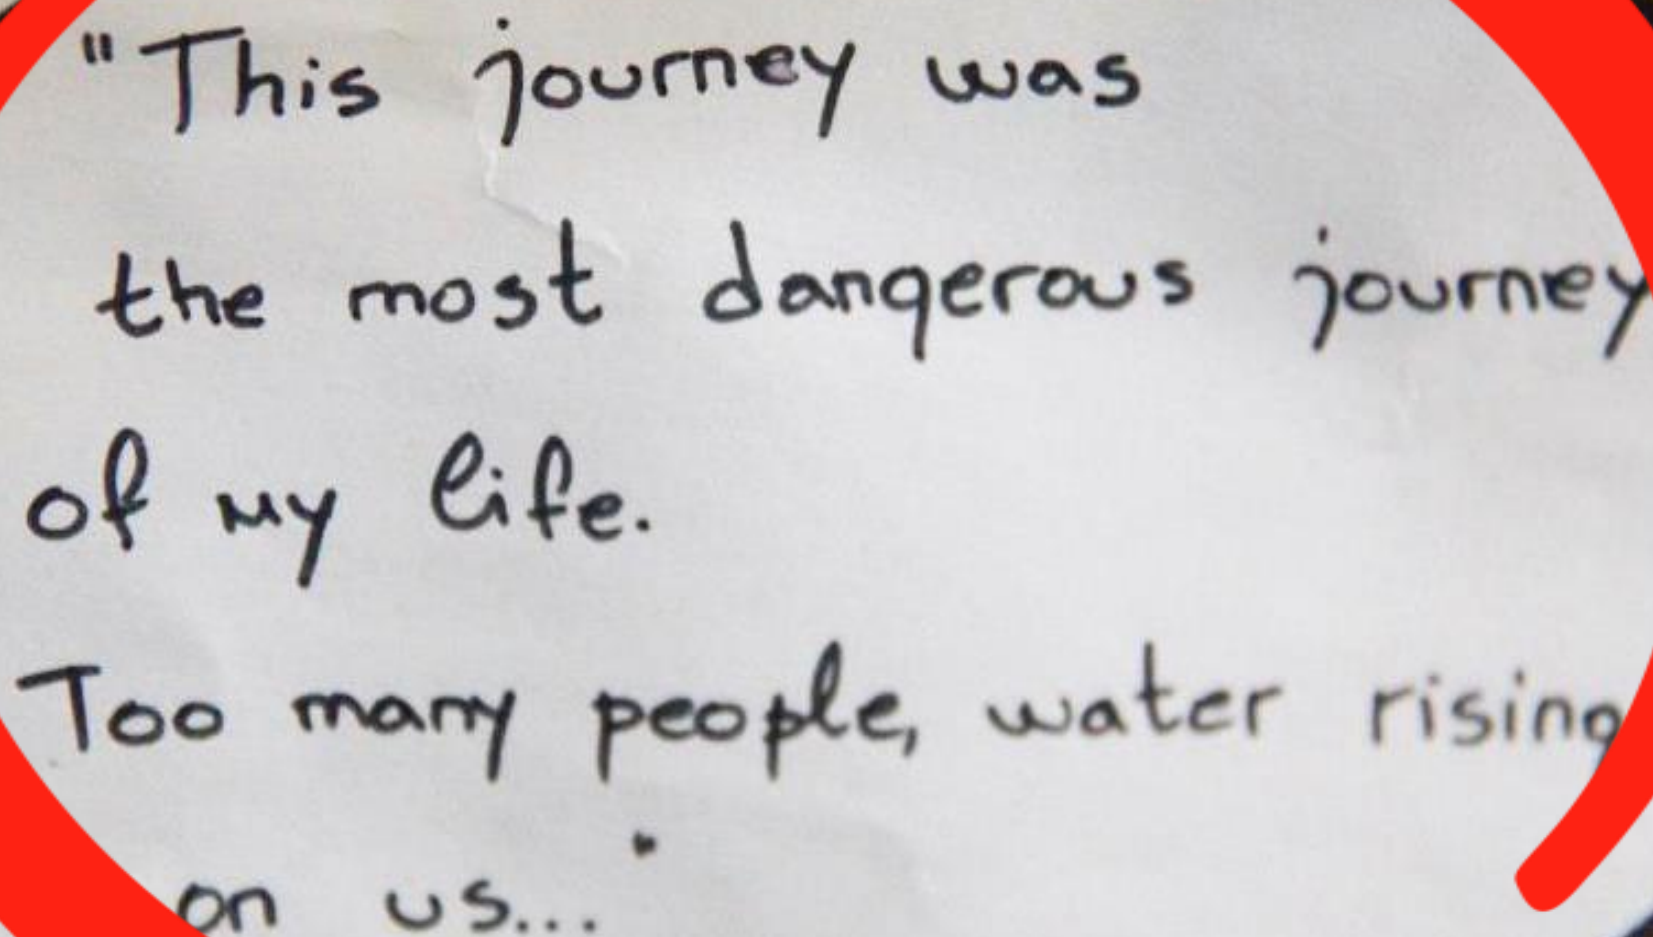 "This journey was
the most dangerous journey
of my life.
Too many people, water rising
on us..."